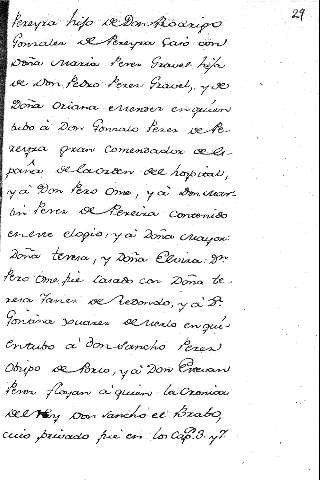 29
Pereyra hijo de Don Rodrigo
Gonzales de Pereyra Casó con
Doña Maria Perez Gravel hija
de Don Pedro Perez Gravel, y de
Doña Oriana en quien
tubo á Don Gonzalo Perez de Pe-
reyra gran Comendador de Es-
paña de la orden del hospital,
y á Don Pero Ome, y á Don Mar-
tin Perez de Pereira contenido
en este elogio, y á Doña Mayor
Doña teresa, y Doña Elvira. Dn.
Pero Ome, fue Casado con Doña te-
resa Yanes de Redondo, y á Da.
Gontina Juarez de en qui-
en tubo á Don Sancho Perez
Obispo de Porto, y á Don Estevan
Perez floyan á quien la Cronica
del Rey Don Sancho el Brabo,
cuio privado fue en los Cap. 3. y 7.